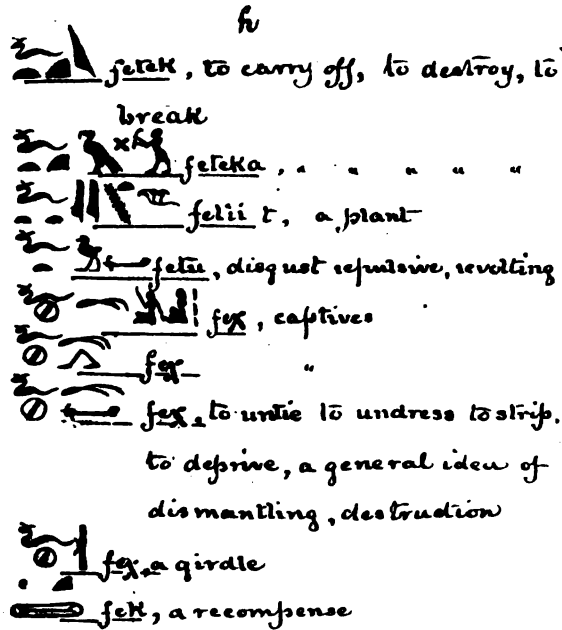 h
fetek, to carry off, to destroy, to
break
feteka, " " " " "
fetii t, a plant
fetu, disgust repulsive, revolting
feχ, captives
feχ "
feχ, to untie to undress to strip.
to deprive, a general idea of
dismantling, destruction
feχ, a girdle
fek, a recompense